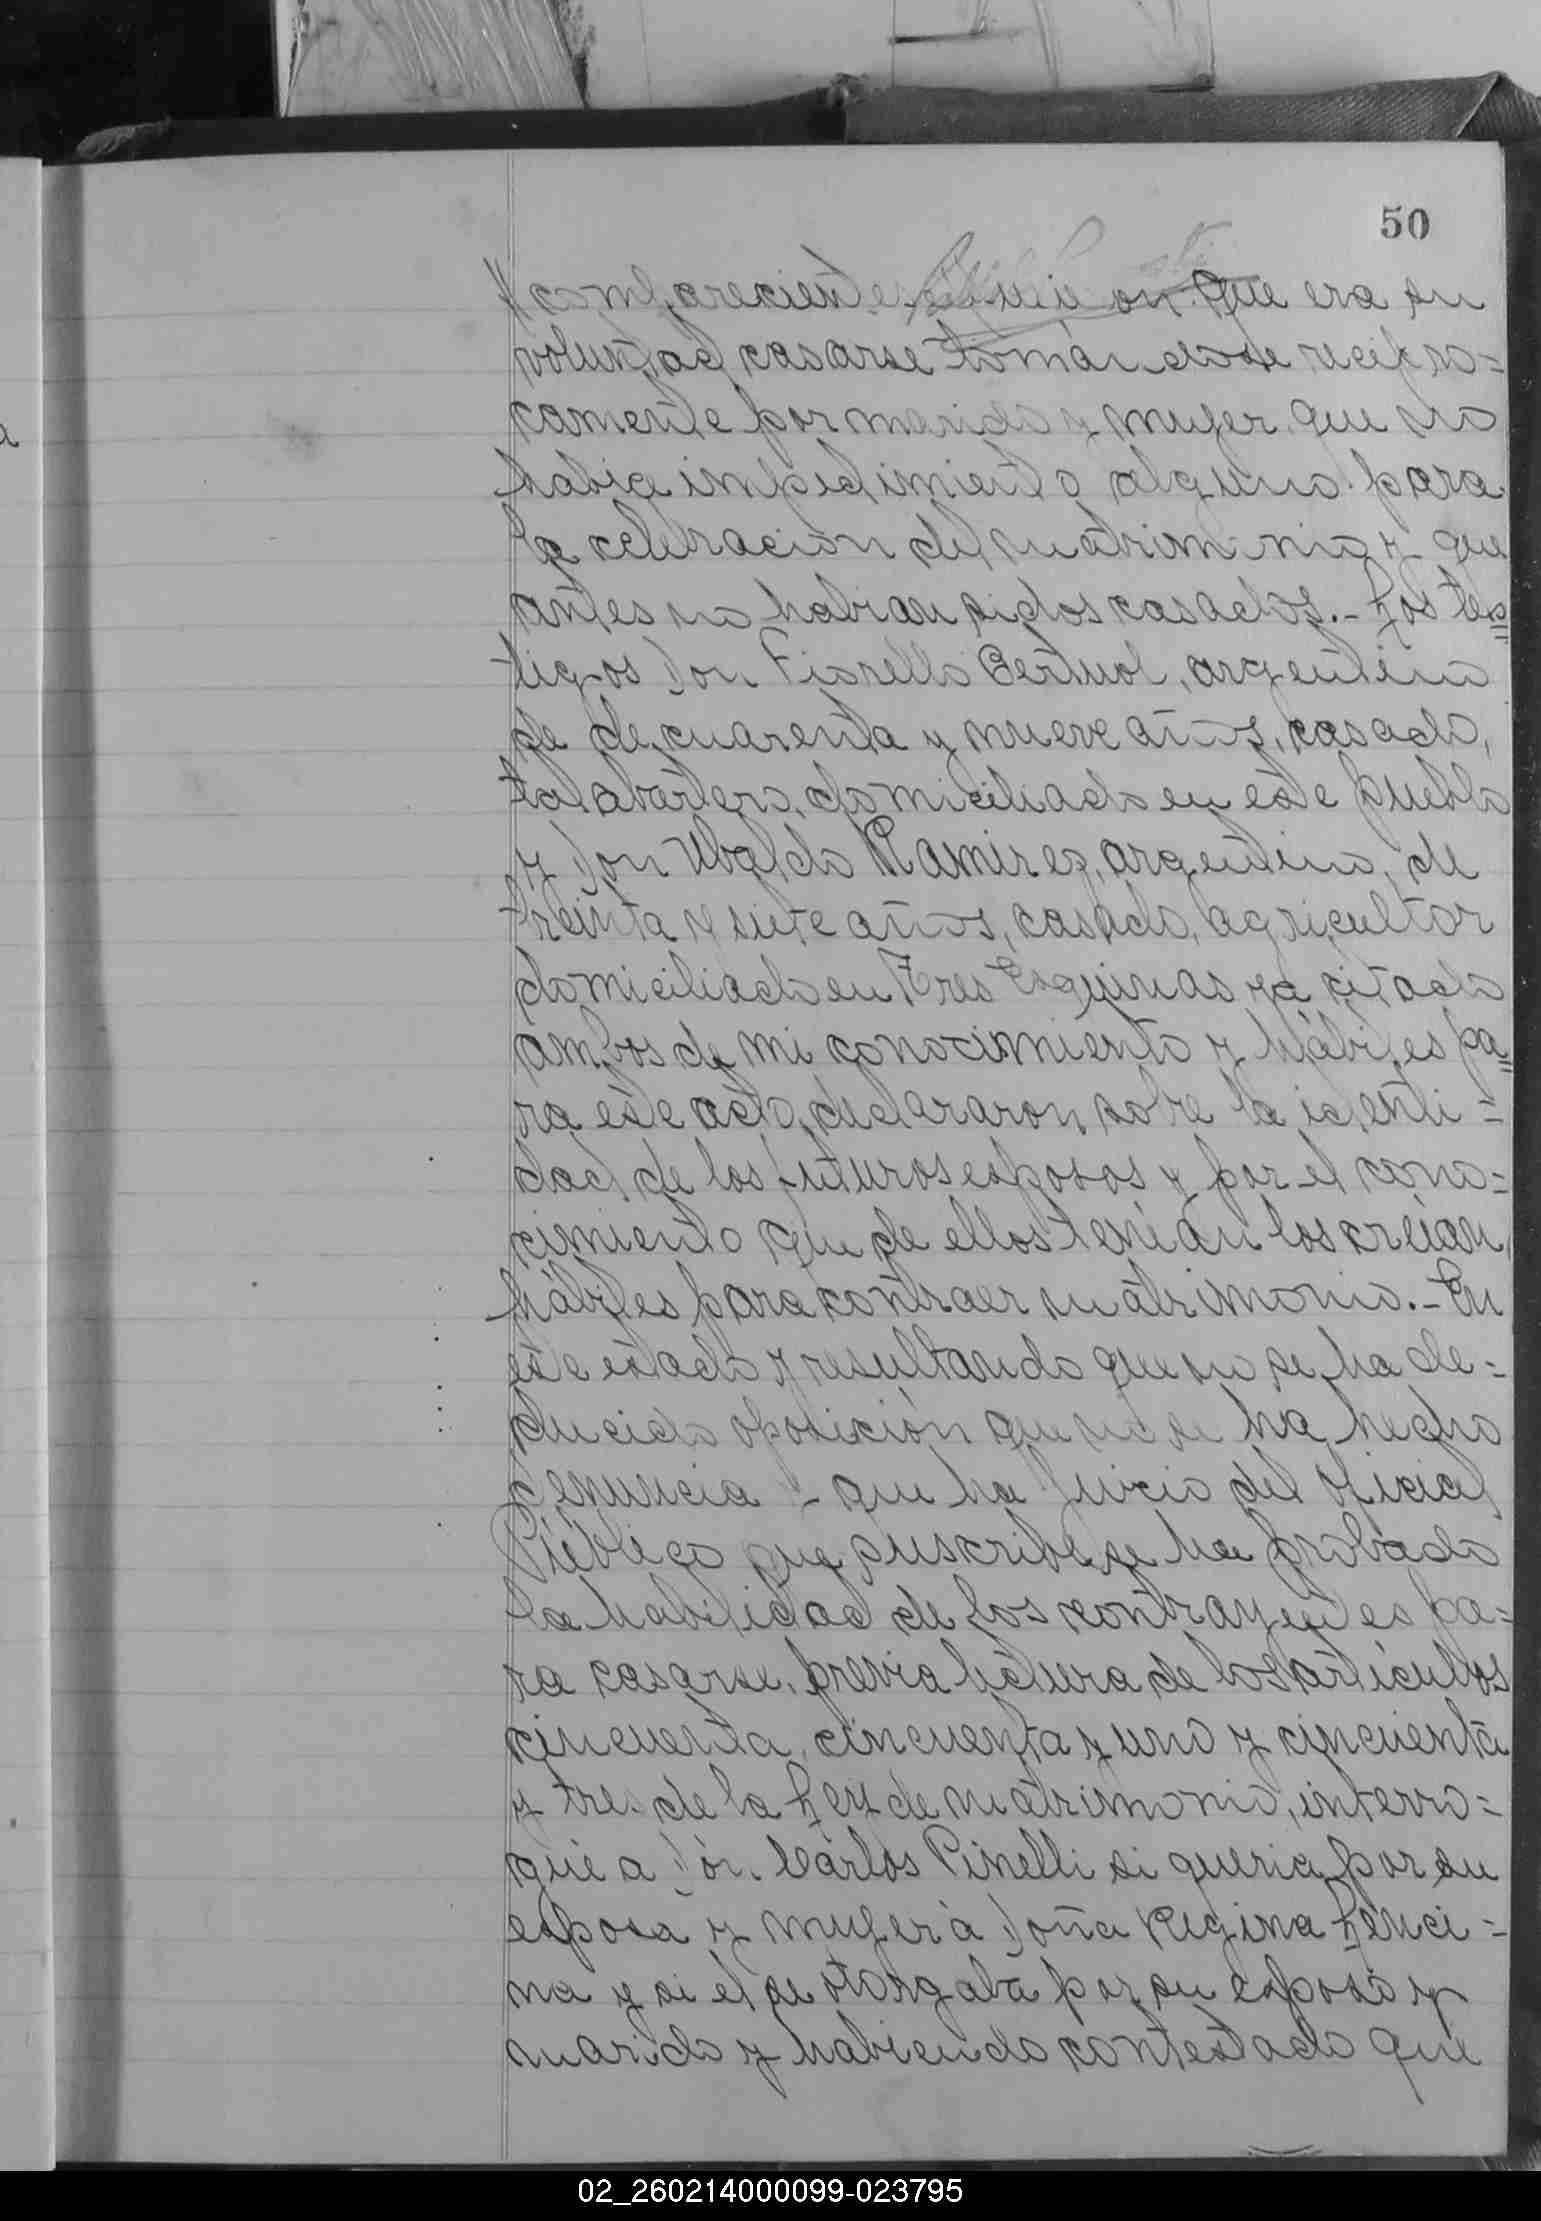 50
// comparecientes dijeron: Que era su
voluntad casarse tomándose recipro=
camente por marido y mujer, que no
habia impedimento alguno para
la celebracion del matrimonio y que
antes no habian sidos casados.- Los tes=
tigos Don Fiorello Bertuol, argentino
de de cuarenta y nueve años, casado,
talabartero, domiciliado en este pueblo
y Don Ubaldo Ramirez, argentino, de
treinta y siete años, casado, agricultor
domiciliado en Tres Esquinas ya citado
ambos de mi conocimiento y hábiles pa=
ra este acto, declararon sobre la identi=
dad de los futuros esposos y por el cono=
cimiento que de ellos tenian los creian
hábiles para contraer matrimonio.- En
este estado y resultando que no se ha de=
ducido oposición que no se ha hecho
denuncia y que ha juicio del Oficial
Público que suscribe se ha probado
la habilidad de los contrayentes pa=
ra casarse, previa lectura de los artículos
cincuenta, cincuenta y uno y cincuenta
y tres de la Ley de matrimonio, interro=
gué a Don Cárlos Pinelli si queria por su
esposa y mujer á Doña Regina Lenci=
na y si él se otorgaba por su esposo y
marido y habiendo contestado que
02_260214000099-023795